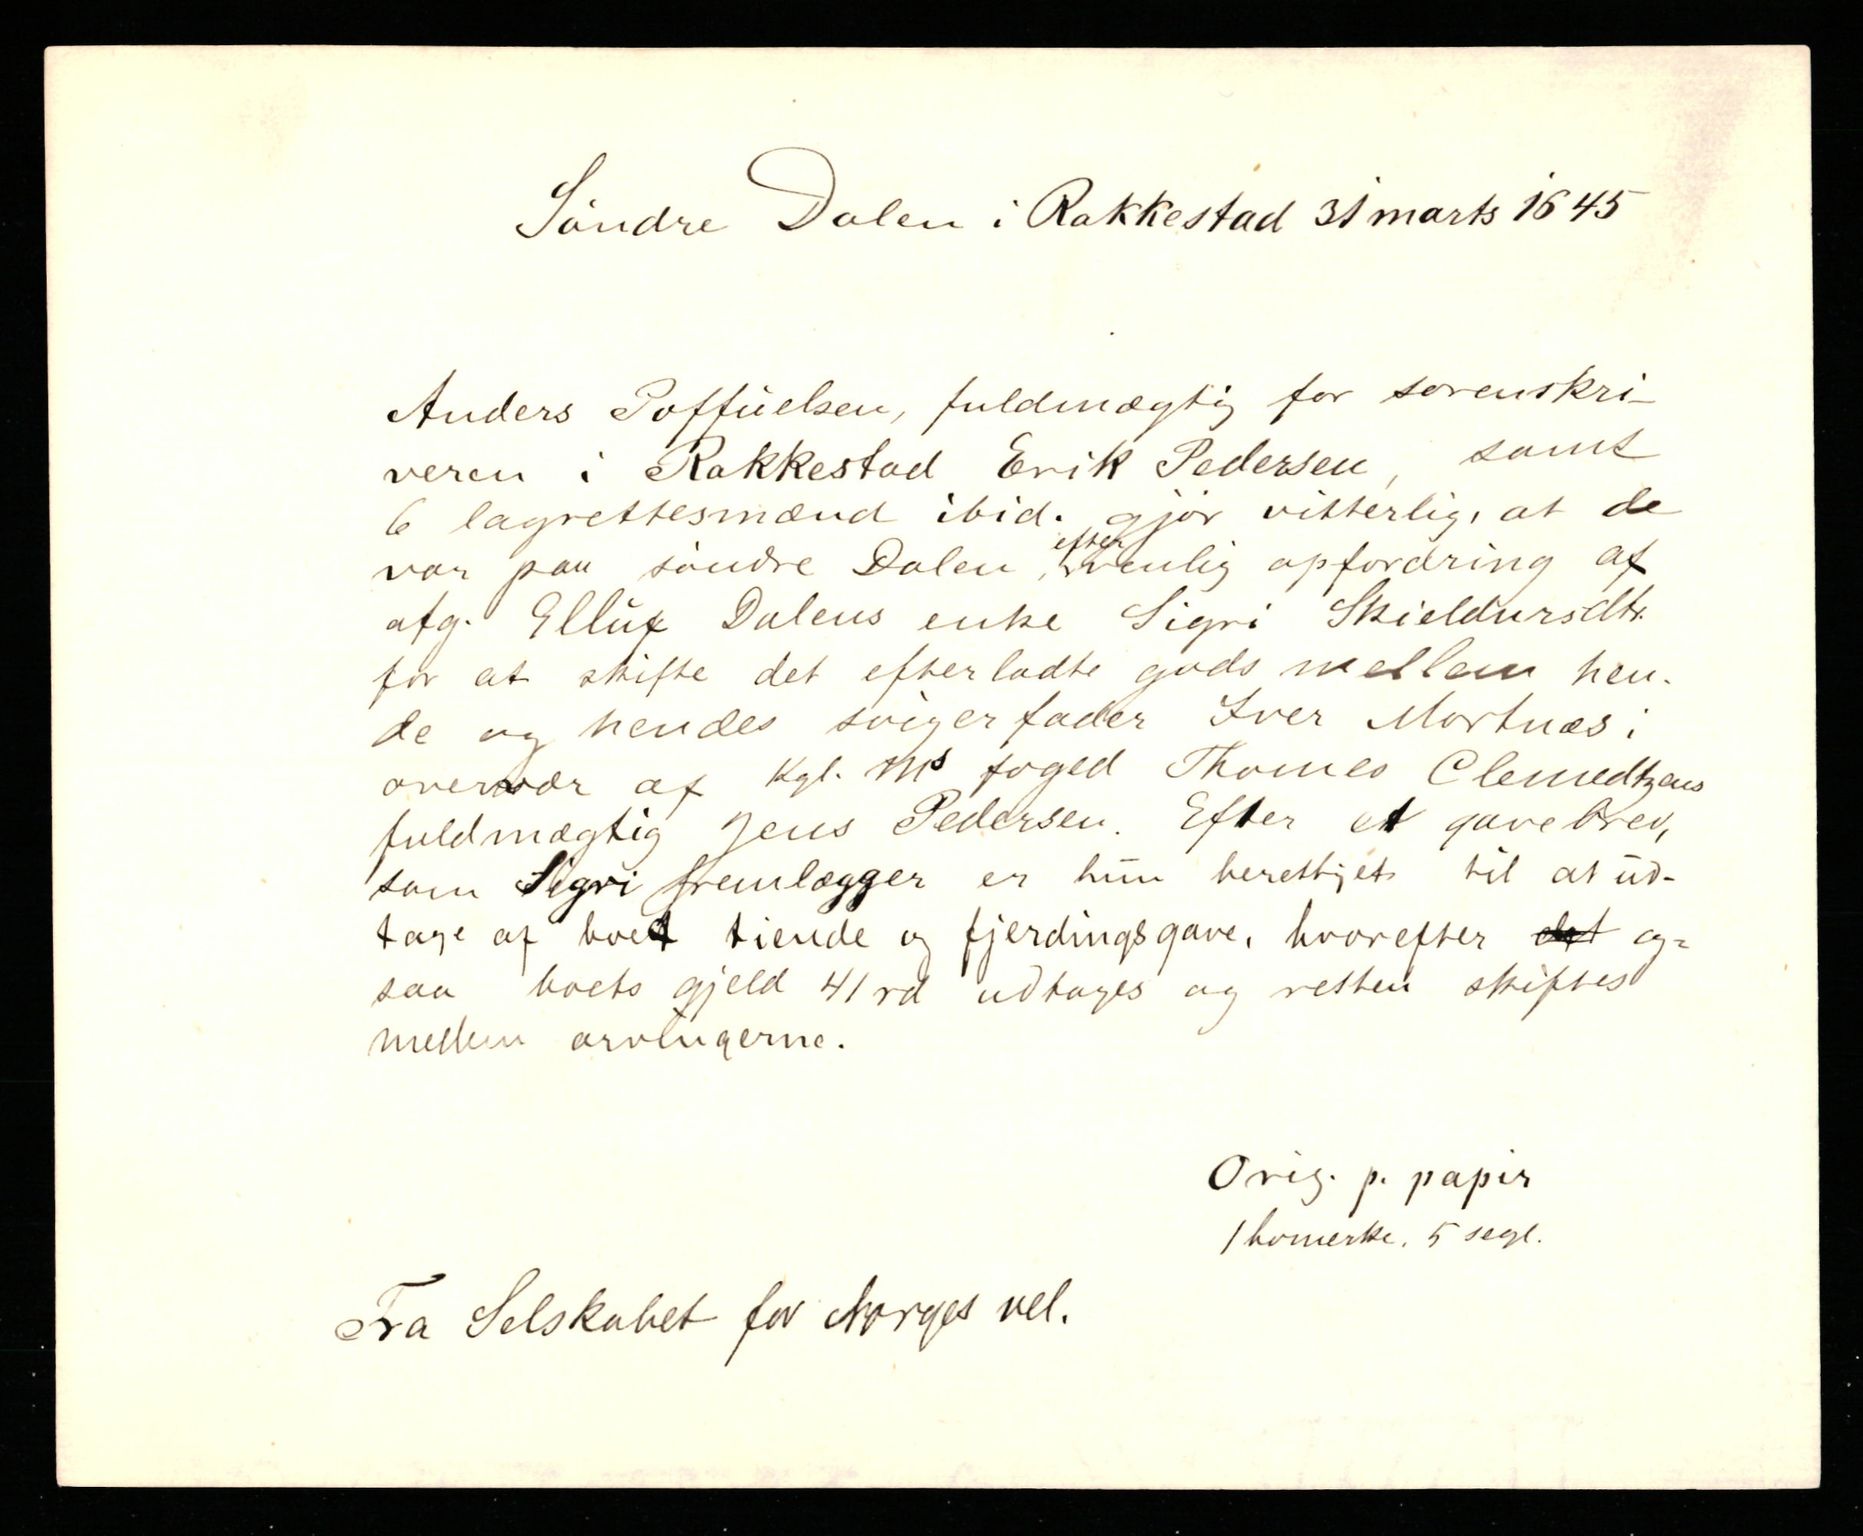 Söndre Dalen i Rakkestad 31 marts 1645
Anders Poffüelsen, fuldmægtig for sorenskri-
veren i Rakkestad Erik Pedersen, samt
6 lagrettesmænd ibid. gjör vitterlig, at de
var paa söndre Dalen, efter venlig opfordring af
afg. Ellüf Dalens enke Sigri Skieldursdtr.
for at skifte det efterladte gods mellem hen-
de og hendes svigerfader Iver Mortnæs i
overvær af kgl. Ms foged Thomes Clemedtzens
fuldmægtig Jens Pedersen. Efter et gavebrev,
som Sigri fremlægger er hün berettiget til at üd-
tage af boet tiende og fjerdingsgave, hvorefter det og-
saa boets gjeld 41 rd udtages og resten skiftes
mellem arvingerne.
Orig. p. papir
1 bomerke. 5 segl.
Fra Selskabet for Norges vel.